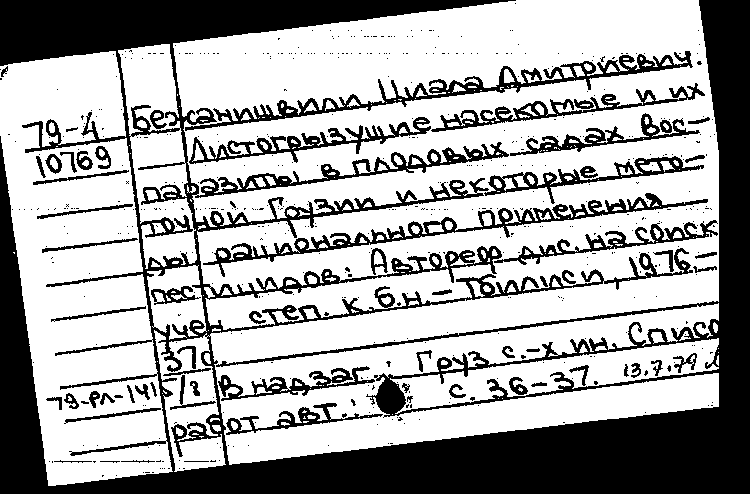 Бежанишвили, Циала Дмитриевич.
79-4
10769
Листогрызущие насекомые и их
паразиты в плодовых садах Вос-
точной Грузии и некоторые мето-
ды рационального применения
пестицидов: Автореф дис. на соиск
учен степ. к.б.н. – Тбилиси, 1976.–
37с.
79-РЛ-141 Б/8 В надзаг.: Груз с.-х. ин. Списо
работ авт.: с. 36-37. 13.7.79